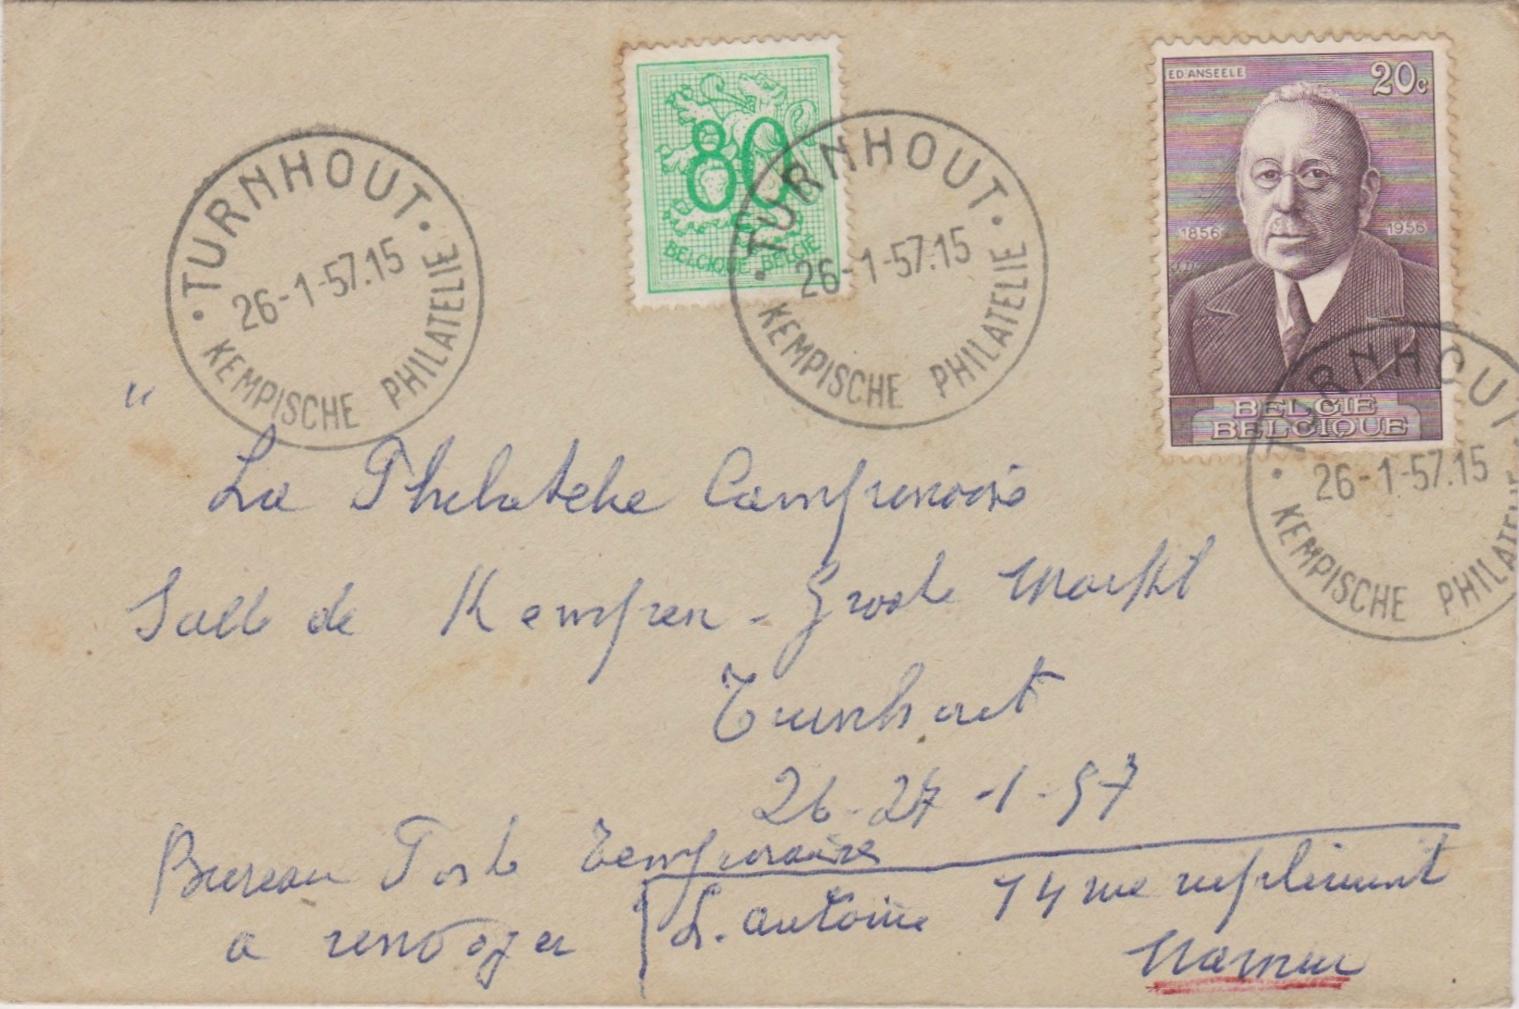 ED. ANSEELE
20c
80
1856
1956
BELGIQUE BELGIE
BELGIE
BELGIQUE
TURNHOUT
26-1-57.15
KEMPISCHE PHILATELIE
TURNHOUT
26-1-57.15
KEMPISCHE PHILATELIE
TURNHOUT
26-1-57.15
KEMPISCHE PHILATELIE
"
La Philatelie Campinoise
Salle de Kempen - Grote Markt
Turnhout
26-27-1-57
Bureau Poste Temporaire
a renvoyer
L. Antoine 14 rue
Namur